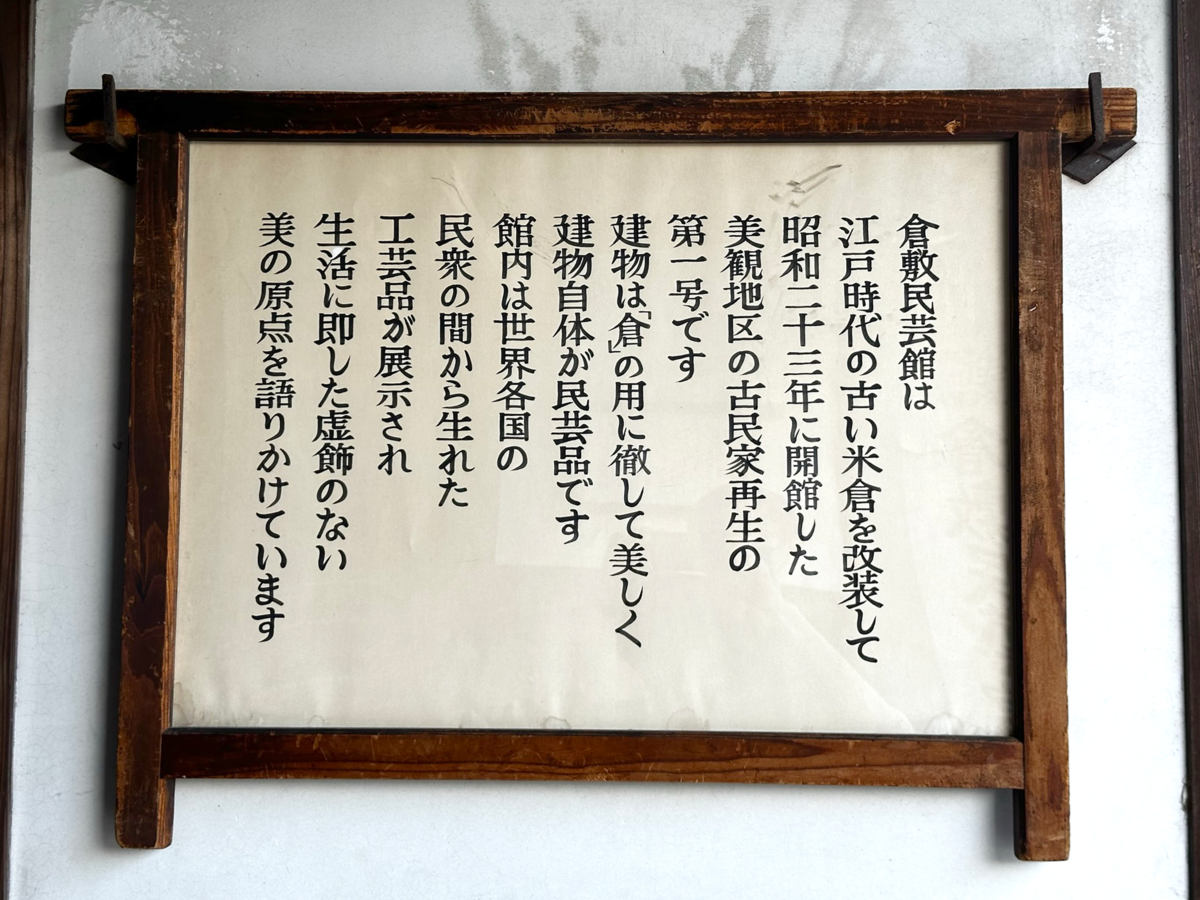 倉敷民芸館は
江戸時代の古い米倉を改装して
昭和二十三年に開館した
美観地区の古民家再生の
第一号です
建物は「倉」の用に徹して美しく
建物自体が民芸品です
館内は世界各国の
民衆の間から生れた
工芸品が展示され
生活に即した虚飾のない
美の原点を語りかけています